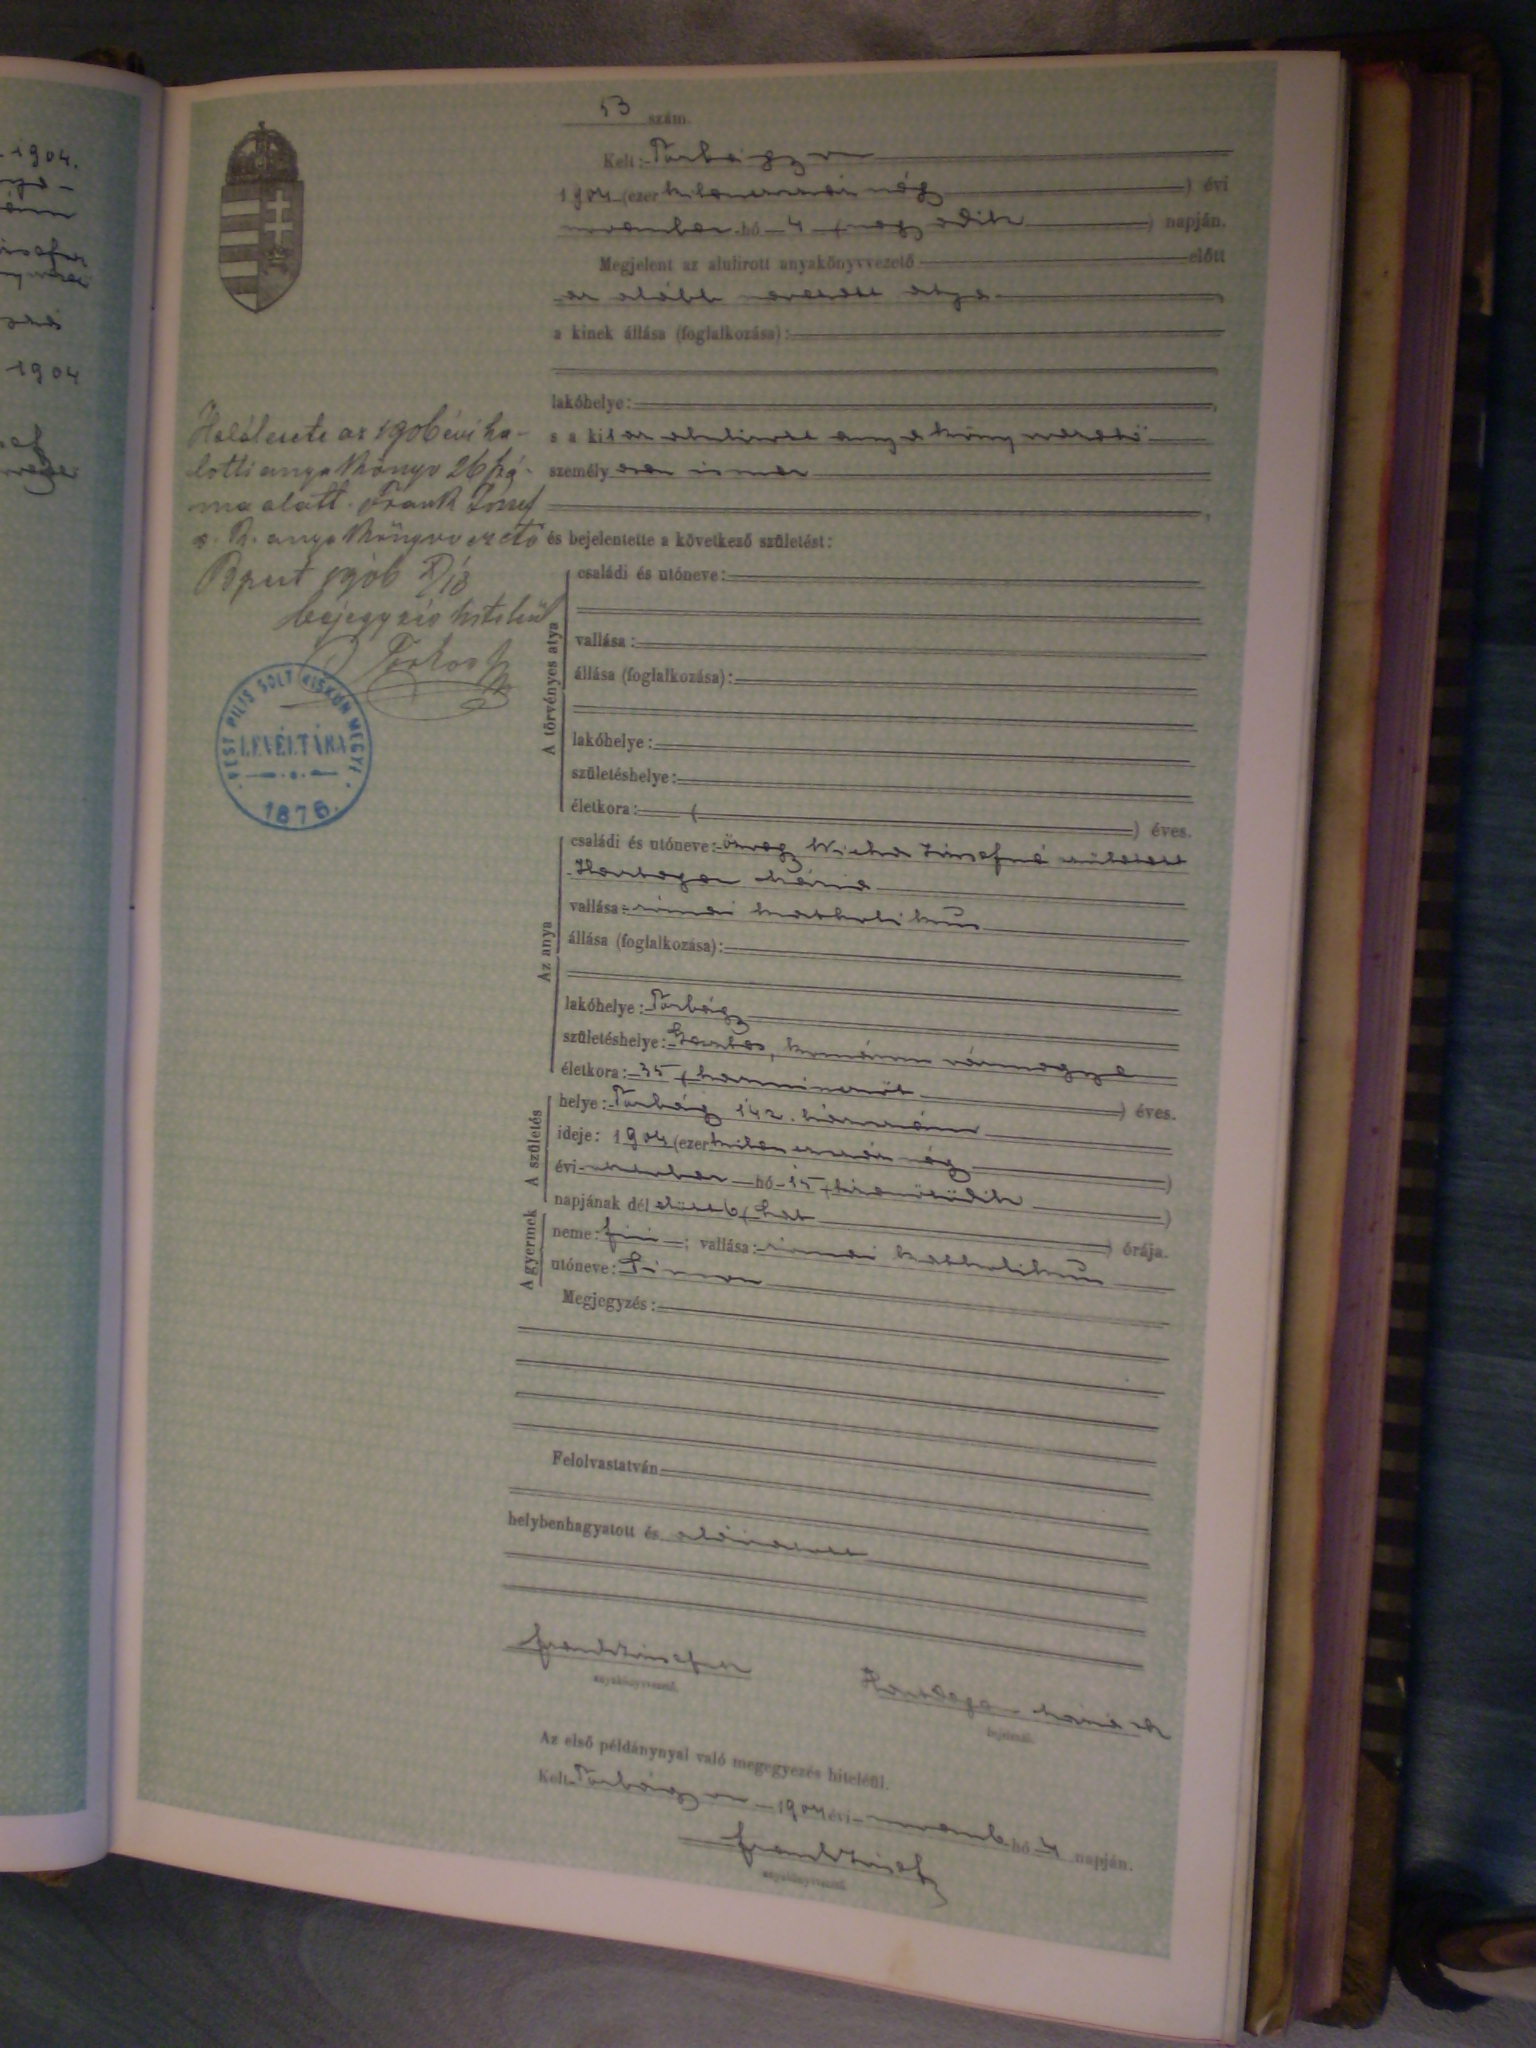 53 szám.
Kelt: Torbágyon
1904 (ezer kilencszáz négy ) évi
november hó 4 ( negyedik ) napján.
Megjelent az alulirott anyakönyvvezető előtt
az alább nevezett anya
a kinek állása (foglalkozása):
lakóhelye:
s a kit az alulirott anyakönyvvezető
személyesen ismer
és bejelentette a következő születést:
A törvényes atya
családi és utóneve:
vallása:
állása (foglalkozása):
lakóhelye:
születéshelye:
életkora: ( ) éves.
Az anya
családi és utóneve: özvegy Józsefné született
Mária
vallása: római katholikus
állása (foglalkozása):
lakóhelye: Torbágy
születéshelye: komárom vármegye
életkora: 35 ( harmincöt ) éves.
A születés
helye: Torbágy 142. házszám
ideje: 1904 (ezer kilencszáz négy )
évi október hó 15 ( tizenötödik )
napjának dél előtt 6 ( hat ) órája.
A gyermek
neme: fiú ; vallása: római katholikus
utóneve: Simon
Megjegyzés:
Felolvastatván
helybenhagyatott és aláiratott
Frank József
anyakönyvvezető.
Mária
bejelentő.
Az első példánynyal való megegyezés hiteléül.
Kelt Torbágyon 1904 évi novemb hó 4 napján.
Frank József
anyakönyvvezető.
Halálesete az 1906 évi ha-
lotti anyakönyv 26 szá-
ma alatt. Frank József
s. k. anyakönyvvezető
Bpest 1906 X/18
bejegyzés hiteléül
PEST PILIS SOLT KISKUN MEGYE
LEVÉLTÁRA
1876
1904.
1904